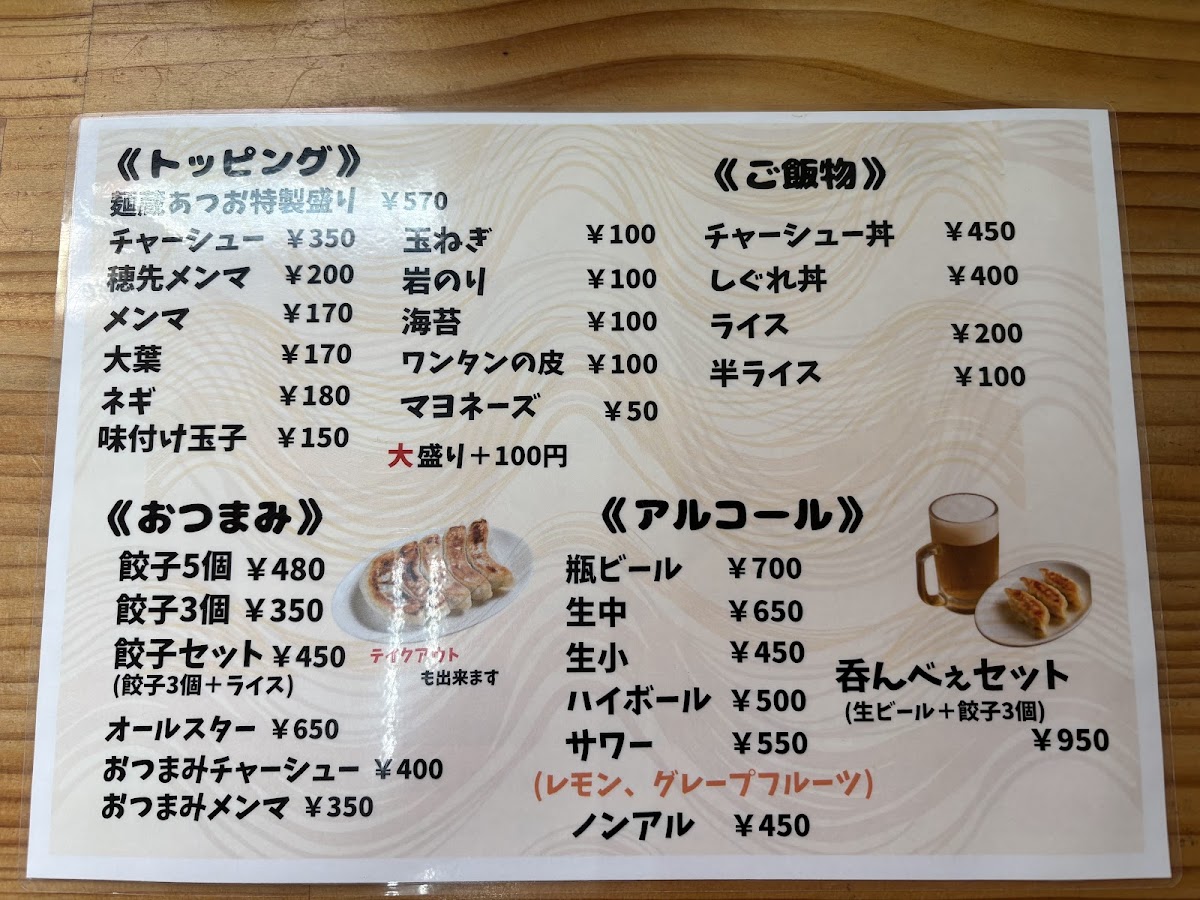 《トッピング》
麺蔵あつお特製盛り ￥570
チャーシュー ￥350
穂先メンマ ￥200
メンマ ￥170
大葉 ￥170
ネギ ￥180
味付け玉子 ￥150
玉ねぎ ￥100
岩のり ￥100
海苔 ￥100
ワンタンの皮 ￥100
マヨネーズ ￥50
大盛り＋100円
《ご飯物》
チャーシュー丼 ￥450
しぐれ丼 ￥400
ライス ￥200
半ライス ￥100
《おつまみ》
餃子5個 ￥480
餃子3個 ￥350
餃子セット ￥450
(餃子3個＋ライス)
テイクアウト
も出来ます
オールスター ￥650
おつまみチャーシュー ￥400
おつまみメンマ ￥350
《アルコール》
瓶ビール ￥700
生中 ￥650
生小 ￥450
ハイボール ￥500
サワー ￥550
(レモン、グレープフルーツ)
ノンアル ￥450
呑んべぇセット
(生ビール＋餃子3個)
￥950